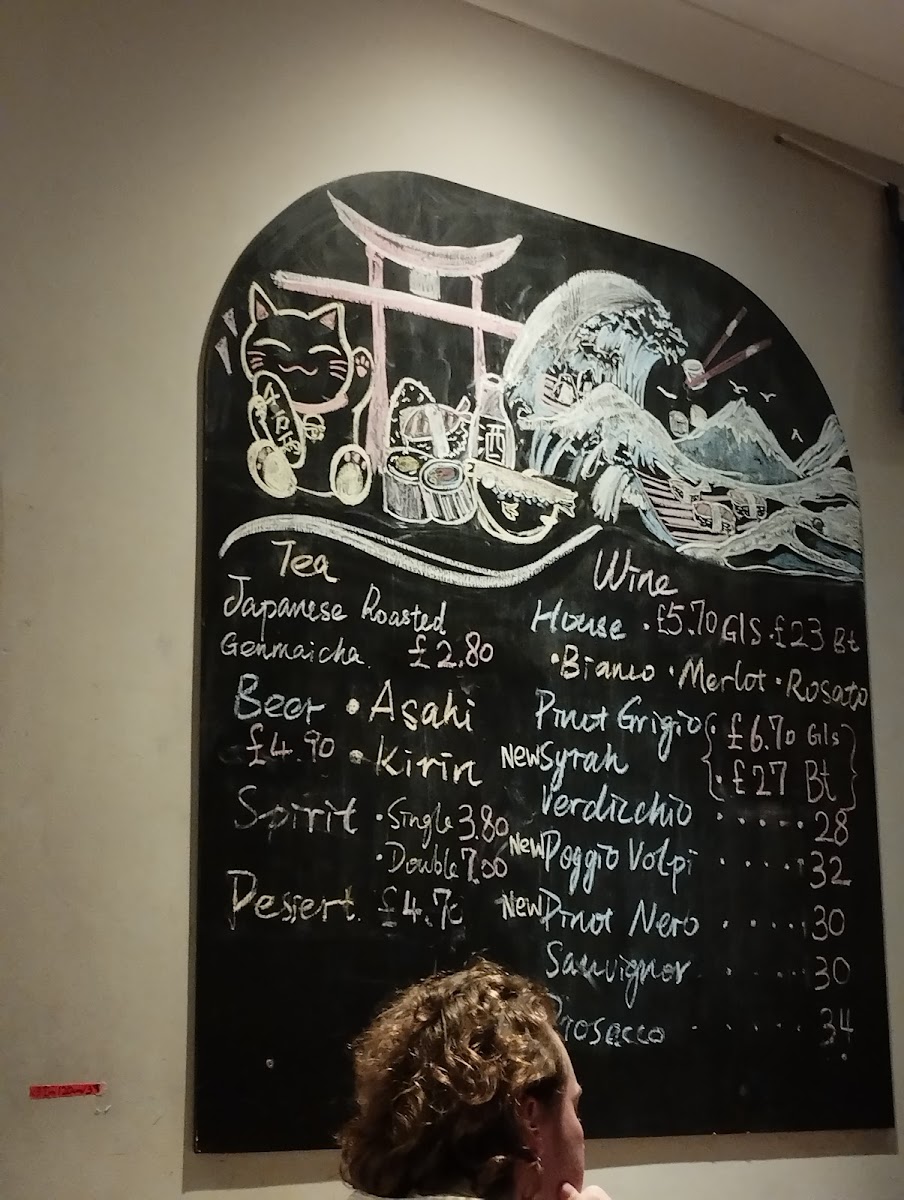 酒
Tea
Japanese Roasted
Genmaicha. £2.80
Beer • Asahi
£4.90 • Kirin
Spirit • Single 3.80
• Double 7.00
Dessert. £4.70
Wine
House • £5.70 Gls • £23 Bt
• Bianco • Merlot • Rosato
Pinot Grigio
New Syrah
{ • £6.70 Gls
• £27 Bt }
Verdicchio ..... 28
New Poggio Volpi ..... 32
New Pinot Nero ..... 30
Sauvignon ..... 30
Prosecco ..... 34